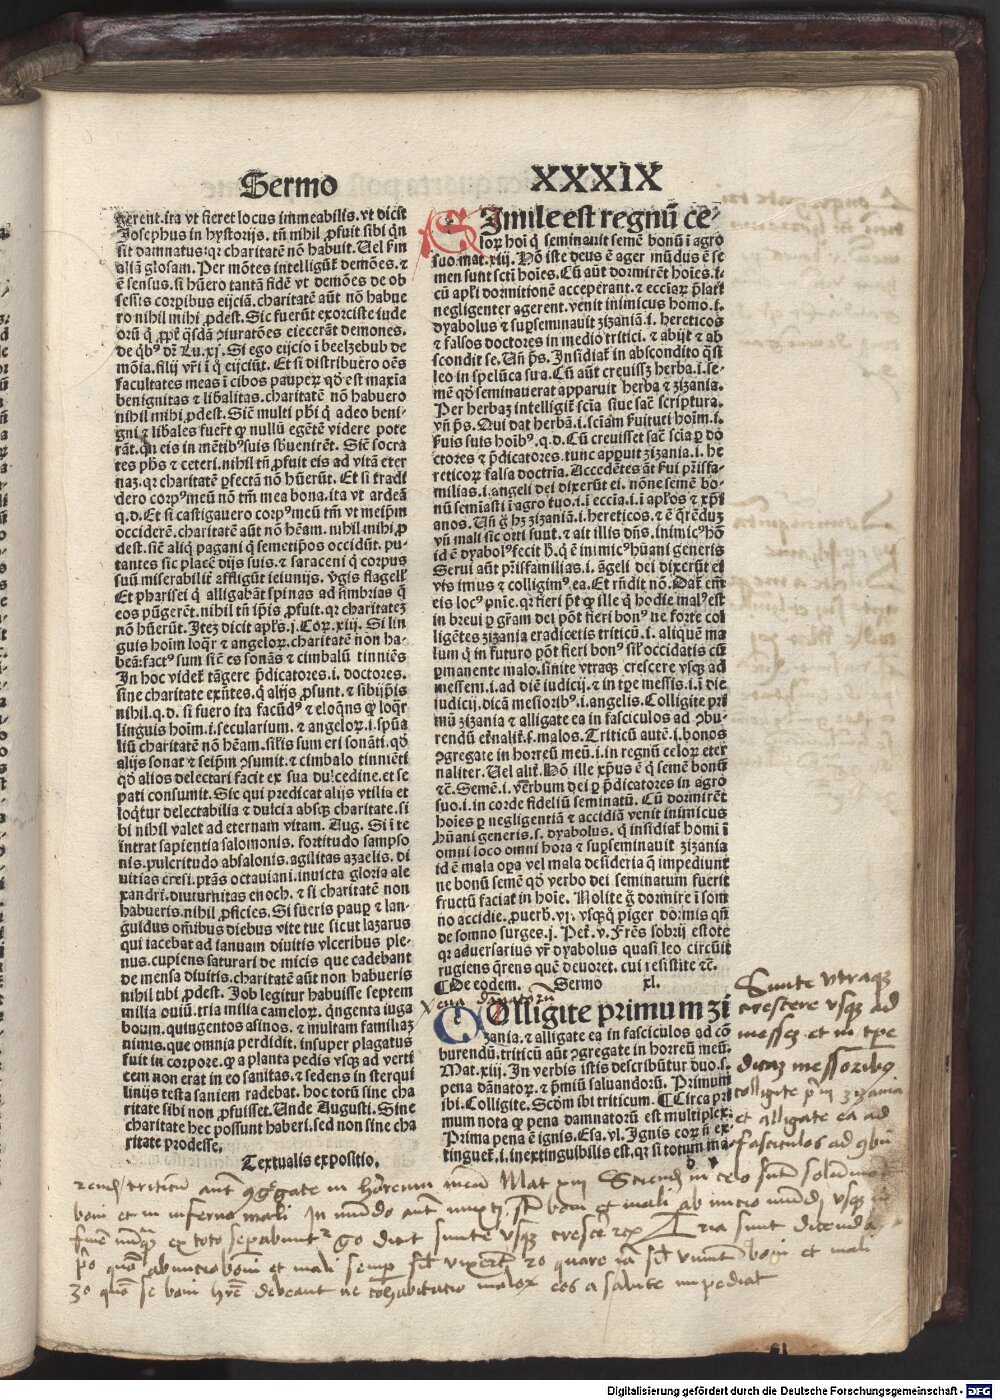 Sermo
XXXIX
gerent. ita vt fieret locus immeabilis. vt dicit
Josephus in hystorijs. tñ nihil ꝓfuit sibi qñ
sit damnatus: qꝛ charitatē nō habuit. Uel ẜm
aliā glosam. Per mōtes intelligūt̃ demōes. ⁊
ē sensus. si hūero tantā fidē vt demōes de ob
sessis corpibus eijciā. charitatē aūt nō habue
ro nihil mihi ꝓdest. Sic fuerūt exorciste iude
orū q̄ ꝓpt̃ q̄sdā ꝯiuratōes eiecerāt demones.
de qbꝰ dr̄ Lu. xj. Si ego eijcio ī beelzebub de
mōia. filij vr̄i ī q̄ eijciūt. Et si distribuero oēs
facultates meas ī cibos pauperꝝ qd̄ est maxīa
benignitas ⁊ libalitas. charitatē nō habuero
nihil mihi ꝓdest. Siē multi phi q̄ adeo beni-
gni ⁊ libales fuerūt ꝙ nullū egētē videre pote
rāt. qn eis in mētibꝰ suis sbuenirēt. Siē socra
tes phs ⁊ ceteri. nihil tñ ꝓfuit eis ad vitā eter
naz. qꝛ charitatē ꝑfectā nō hūerūt. Et si tradi
dero corpꝰ meū nō tm̄ mea bona. ita vt ardeā
q. d. Et si castigauero corpꝰ meū tm̄ vt meipm̄
occiderē. charitatē aūt nō hēam. nihil mihi ꝓ
dest. siē aliq̄ pagani q̄ semetipōs occidūt. pu-
tantes sic placē dijs suis. ⁊ saraceni q̄ corpus
suū miserabilit̃ affligūt ieiunijs. v̄gis flagell̃
Et pharisei q̄ alligabāt spinas ad fimbrias q̄
eos pūgerēt. nihil tñ ip̄is ꝓfuit. qꝛ charitatez
nō hūerūt. Itez dicit apl̄s. j. Cor. xiij. Si lin
guis hoīm loqr̄ ⁊ angeloꝝ. charitatē non ha-
beā: factꝰ sum siē es sonās ⁊ cimbalū tinniēs
In hoc videt̃ tāgere p̄dicatores. i. doctores.
sine charitate exn̄tes. q̄ alijs ꝓsunt. ⁊ sibijp̄is
nihil. q. d. si fuero ita facūdꝰ ⁊ eloqn̄s ꝙ loqr̄
linguis hoīm. i. secularium. ⁊ angeloꝝ. i. spūa
liū charitatē nō hēam. sil̄is sum eri sonāti. qd̄
alijs sonat ⁊ seip̄m ꝯsumit. ⁊ cimbalo tinniēti
qd̄ alios delectari facit ex sua dulcedine. et se
pati consumit. Sic qui predicat alijs vtilia et
loqt̃ur delectabilia ⁊ dulcia absqꝫ charitate. si
bi nihil valet ad eternam vitam. Aug. Si ī te
intrat sapientia salomonis. fortitudo sampso
nis. pulcritudo absalonis. agilitas azaelis. di
uitias cresi. ptās octauiani. inuicta gloria ale
xandri. diuturnitas enoch. ⁊ si charitatē non
habueris. nihil ꝓficies. Si fueris paup ⁊ lan-
guidus om̄ibus diebus vite tue sicut lazarus
qui iacebat ad ianuam diuitis vlceribus ple-
nus. cupiens saturari de micis que cadebant
de mensa diuitis. charitatē aūt non habueris
nihil tibi ꝓdest. Job legitur habuisse septem
milia ouiū. tria milia cameloꝝ. q̄ngenta iuga
boum. quingentos asinos. ⁊ multam familiaz
nimis. que omnia perdidit. insuper plagatus
fuit in corpore. ꝙ a planta pedis vsqꝫ ad verti
cem non erat in eo sanitas. ⁊ sedens in sterqui
linijs testa saniem radebat. hoc totū sine cha
ritate sibi non ꝓfuisset. Unde Augusti. Sine
charitate hec possunt haberi. sed non sine cha
ritate prodesse.
Textualis expositio.
Simile est regnū ce-
loꝝ hoī q̄ seminauit semē bonū ī agro
suo. mat. xiij. Hō iste deus ē ager mūdus ē se
men sunt scti hoīes. Cū aūt dormirēt hoīes. i.
cū apl̄i dormitionē acceperant. ⁊ ecciaꝝ p̄lati
negligenter agerent. venit inimicus homo. i.
dyabolus ⁊ suꝑseminauit zizaniā. i. hereticos
⁊ falsos doctores in medio tritici. ⁊ abijt ⁊ ab
scondit se. Uñ p̄s. Insidiat̃ in abscondito q̄si
leo in spelūca sua. Cū aūt creuissz herba. i. se-
mē qd̄ seminauerat apparuit herba ⁊ zizania.
Per herbaz intelligit̃ scīa siue sac̄ scriptura.
vñ p̄s. Qui dat herbā. i. sciam ẜuituti hoīm. i.
ẜuis suis hoībꝰ. q. d. Cū creuisset sac̄ scia ꝑ do
ctores ⁊ p̄dicatores. tunc appuit zizania. i. he
reticoꝝ falsa doctrīa. Accedētes āt ẜui pr̄isfa-
milias. i. angeli dei dixerūt ei. nōne semē bo-
nū semīasti ī agro tuo. i. ī eccia. i. ī apl̄os ⁊ xp̄i
anos. Uñ g̊ hz zizaniā. i. hereticos. ⁊ ē q̄rēduz
vñ mali sic orti sunt. ⁊ ait illis dn̄s. inimicꝰ hō
id ē dyabolꝰ fecit h̄. q̄ ē inimicꝰ hūani generis
Serui aūt pr̄isfamilias. i. āgeli dei dixerūt ei
vis imus ⁊ colligimꝰ ea. Et rn̄dit nō. Dat̃ em̄
eis locꝰ pn̄ie. qꝛ fieri p̄t ꝙ ille q̄ hodie malꝰ est
in breui ꝑ gr̄am dei pōt fieri bonꝰ ne forte col
ligētes zizania eradicetis triticū. i. aliquē ma
lum q̄ in futuro pōt fieri bonꝰ sil̄ occidatis cū
ꝑmanente malo. sinite vtraqꝫ crescere vsqꝫ ad
messem. i. ad diē iudicij. ⁊ in tꝑe messis. i. ī die
iudicij. dicā messoribꝰ. i. angelis. Colligite pri
mū zizania ⁊ alligate ea in fasciculos ad ꝯbu-
rendū et̃nalit̃. s. malos. Triticū autē. i. bonos
ꝯgregate in horreū meū. i. in regnū celoꝝ eter
naliter. Uel alit̃. Hō ille xp̄us ē q̄ semē bonū
⁊c̄. Semē. i. verbum dei ꝑ p̄dicatores in agro
suo. i. in corde fideliū seminatū. Cū dormirēt
hoīes ꝑ negligentiā ⁊ accidiā venit inimicus
hūani generis. s. dyabolus. q̄ insidiat̃ homī ī
omni loco omni hora ⁊ suꝑseminauit zizania
id ē mala oꝑa vel mala desideria q̄ impediunt
ne bonū semē qd̄ verbo dei seminatum fuerit
fructū faciat in hoīe. Nolite g̊ dormire ī som
no accidie. ꝓuerb. vj. vsqꝫq̊ piger dormis qn̄
de somno surges. j. Pet̃. v. Fr̄es sobrij estote
qꝛ aduersarius vr̄ dyabolus quasi leo circuit
rugiens q̄rens quē deuoret. cui resistite ⁊c̄.
¶ De eodem. Sermo xl.
Colligite primum zi
zania. ⁊ alligate ea in fasciculos ad cō
burendū. triticū aūt ꝯgregate in horreū meū.
Mat. xiij. In verbis istis describūtur duo. s.
pena dānatoꝝ. ⁊ p̄miū saluandorū. Primum
ibi. Colligite. Scd̄m ibi triticum. ¶ Circa pri
mum nota ꝙ pena damnatorū est multiplex.
Prima pena ē ignis. Esa. vl. Ignis eoꝝ ñ ex-
tinguet̃. i. inextinguibilis est. qꝛ si totum ma-
Sinite vtraqꝫ
crescere vsqꝫ ad
messez et in tpe
dicaz messoribꝰ
colligite pm̄ zizania
et alligate ea ad
fasciculos ad ꝯbu
rend̄ triticū aūt ꝯgregate in horreum meum Mat xiij
boni et in inferno mali In mundo aūt mixti st̄ boni et mali ab initio mundi vsqꝫ